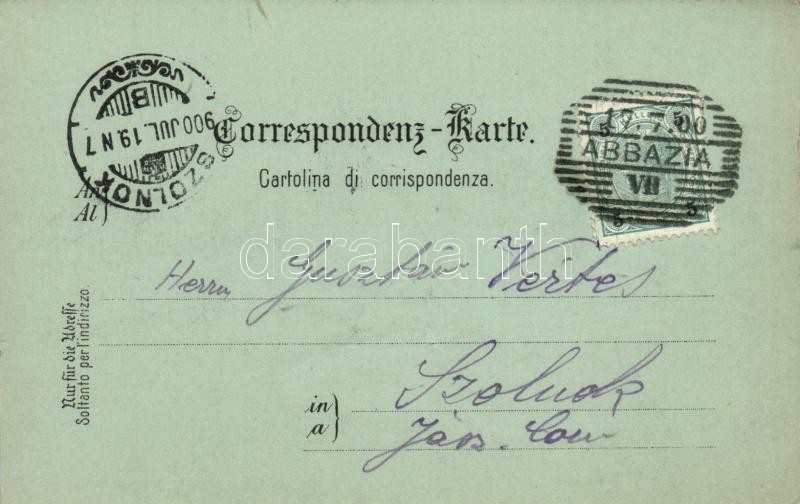 SZOLNOK
900 JUL. 19. N 7
B
Correspondenz-Karte.
Cartolina di corrispondenza.
5 HELLER 5
17.7.00
ABBAZIA
VII
5 5
An
Al
darabanth
Herrn Gusztáv Vértes
Nur für die Adresse
Soltanto per l'indirizzo.
in
a
Szolnok
Jász. Com